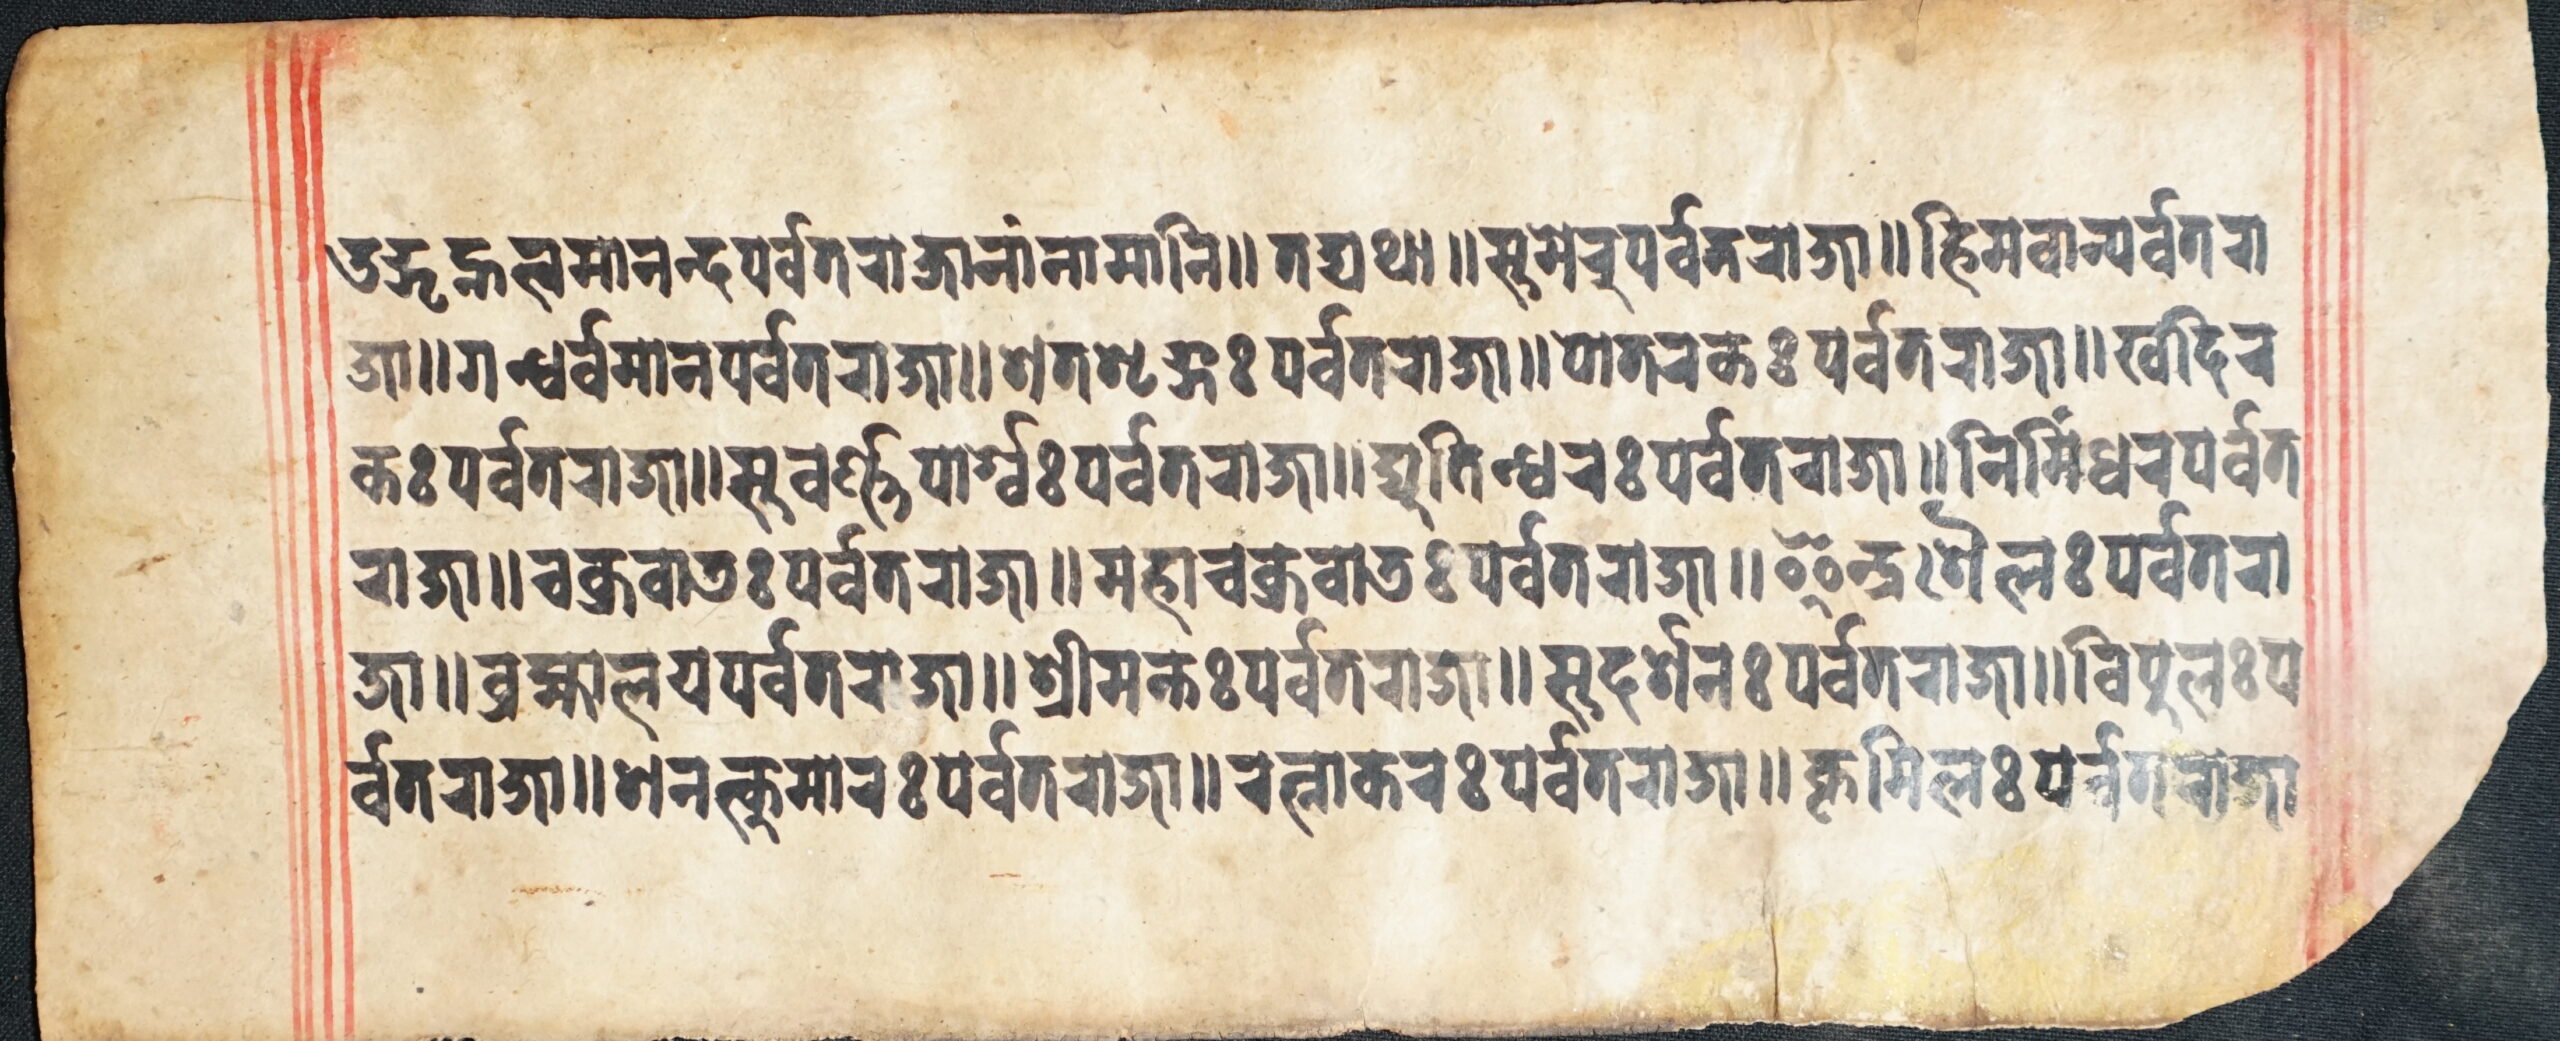 उद्गृह्णत्वमानन्दपर्वतराजानांनामानि॥तद्यथा॥सुमेरुपर्वतराजा॥हिमवान्पर्वतरा
जा॥गन्धर्वमानपर्वतराजा॥शतशृङ्गःपर्वतराजा॥पोतरकःपर्वतराजा॥खदिर
कःपर्वतराजा॥सुवर्ण्णपार्श्वःपर्वतराजा॥द्युतिन्धरःपर्वतराजा॥निमिंधरपर्वत
राजा॥चक्रवाडःपर्वतराजा॥महाचक्रवाडःपर्वतराजा॥इन्द्रशैलःपर्वतरा
जा॥ब्रह्मालयपर्वतराजा॥श्रीमन्तःपर्वतराजा॥सुदर्शनःपर्वतराजा॥विपुलःप
र्वतराजा॥शनत्कुमारःपर्वतराजा॥रत्नाकरःपर्वतराजा॥कृमिलःपर्वतराजा